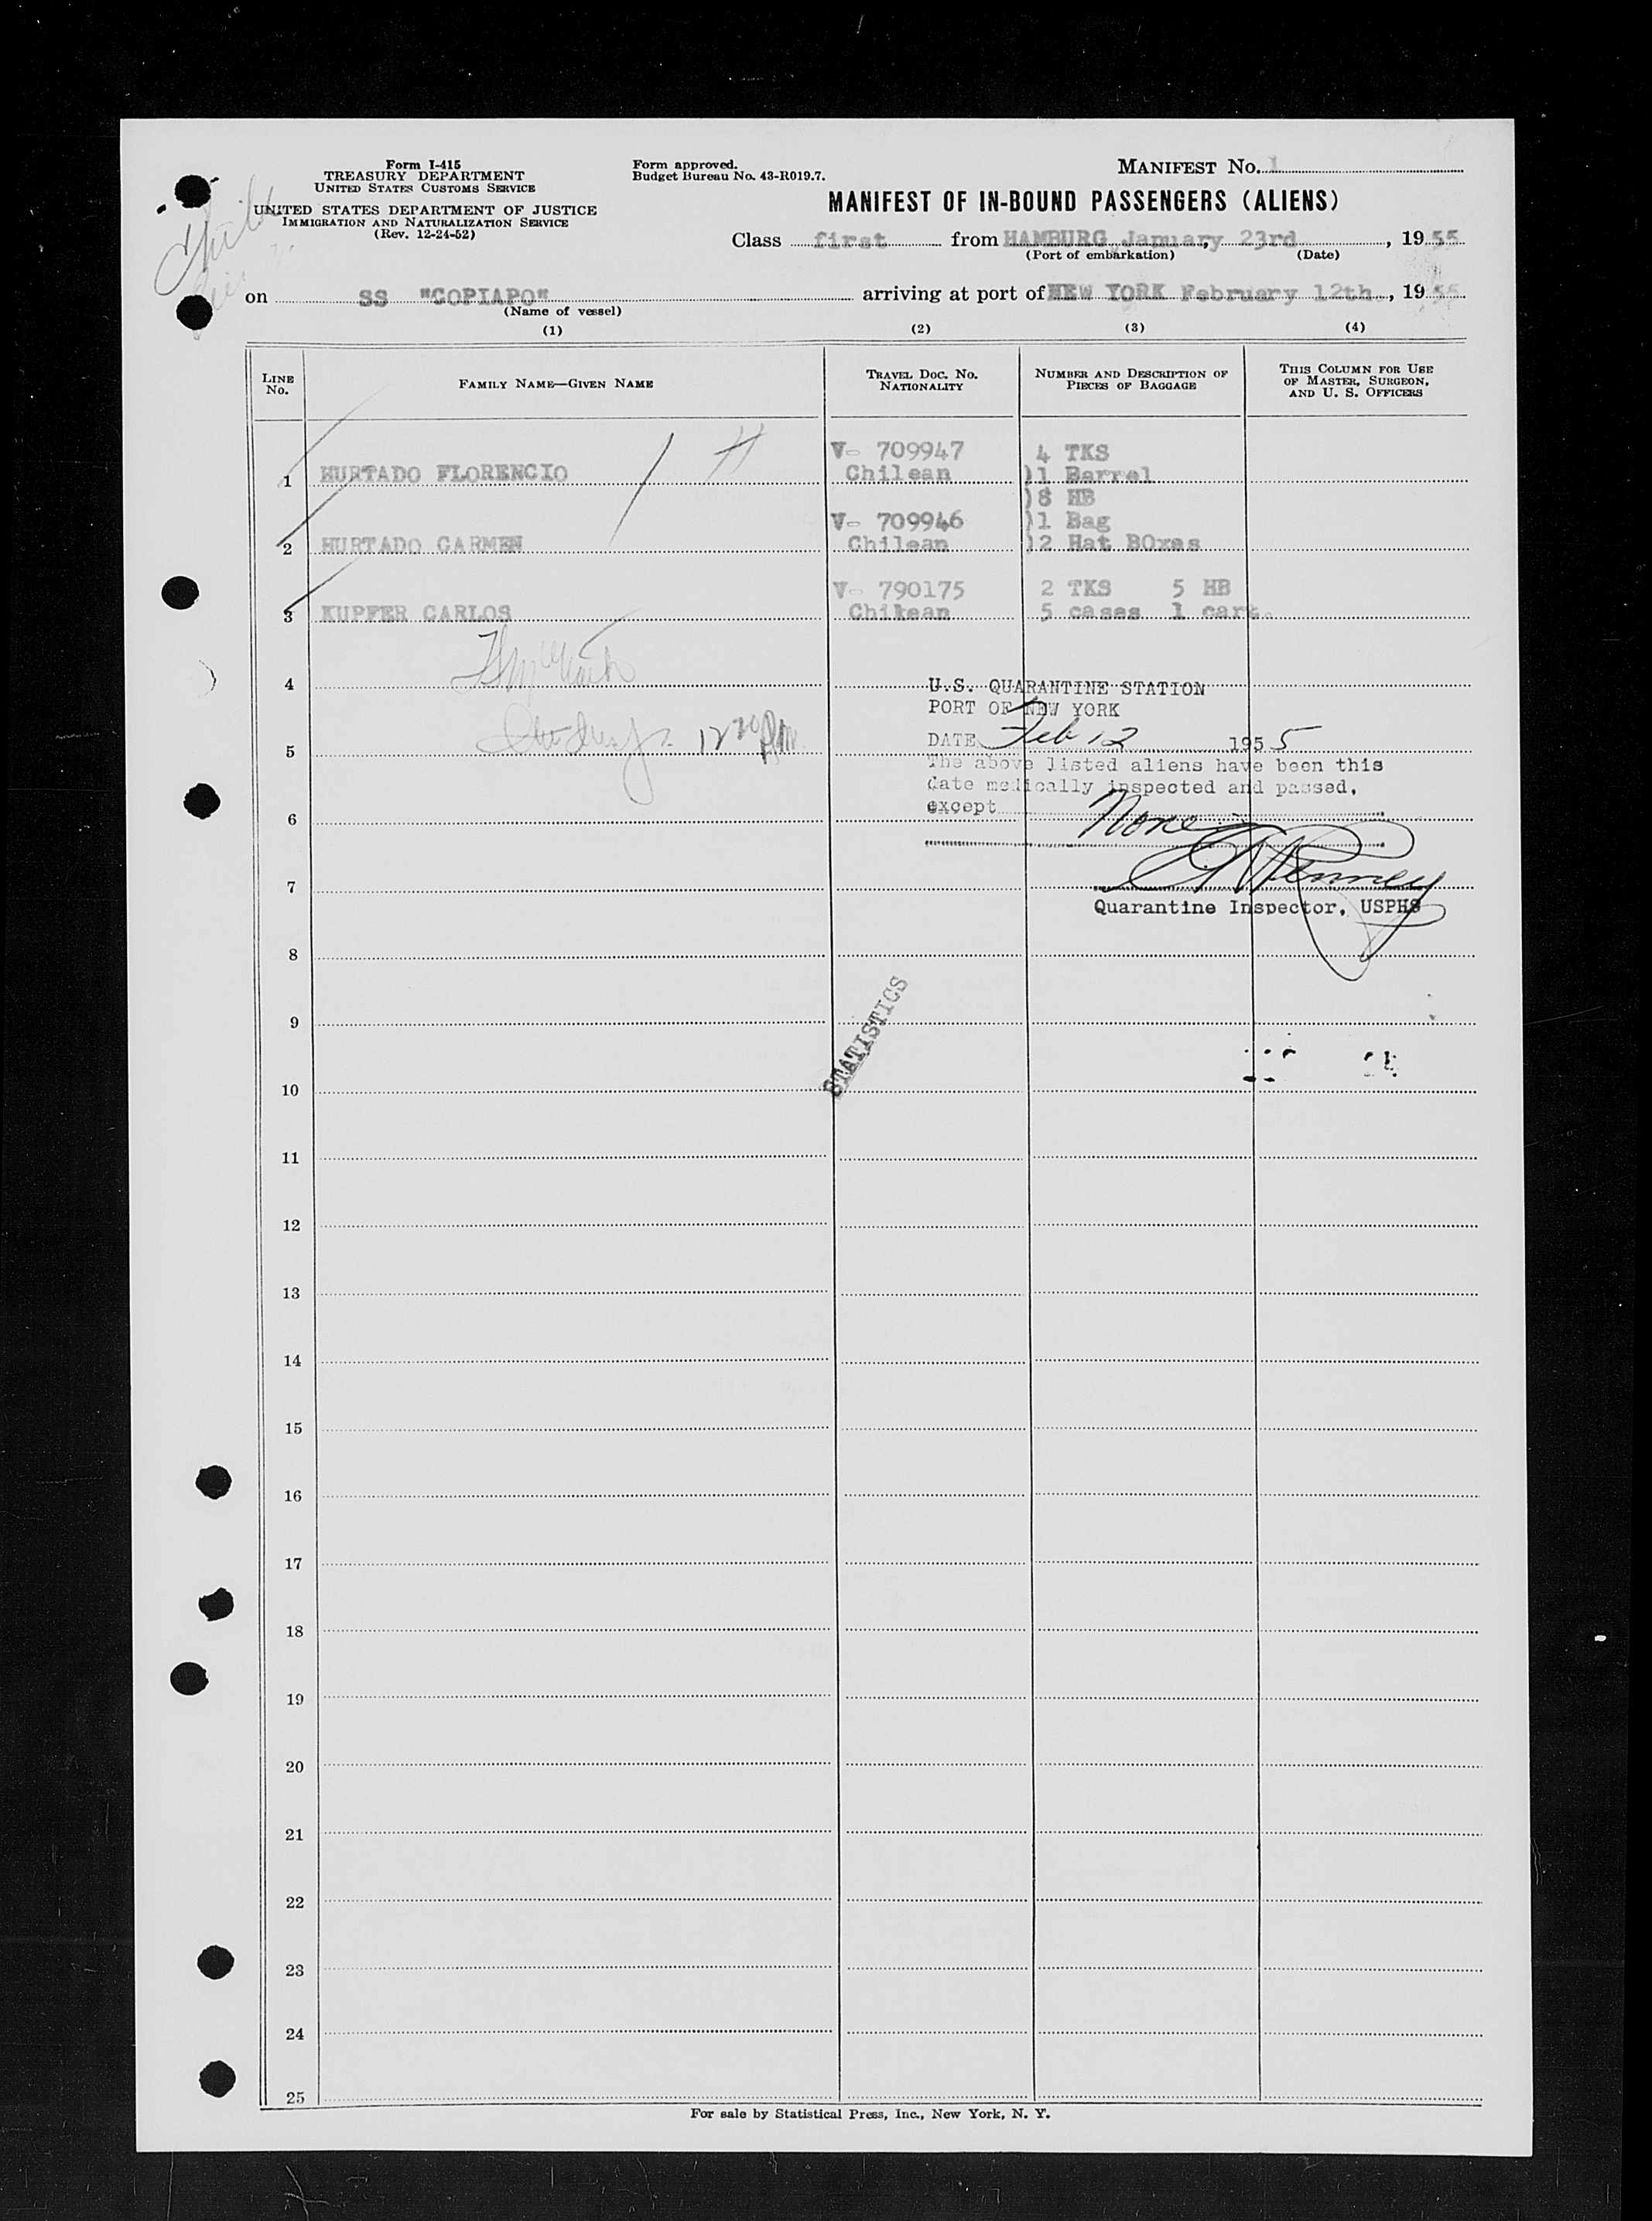 Form I-415
TREASURY DEPARTMENT
UNITED STATES CUSTOMS SERVICE
UNITED STATES DEPARTMENT OF JUSTICE
IMMIGRATION AND NATURALIZATION SERVICE
(Rev. 12-24-52)
Form approved.
Budget Bureau No. 43-R019.7.
MANIFEST NO. 1
MANIFEST OF IN-BOUND PASSENGERS (ALIENS)
Class first from HAMBURG, January 23rd, 1955
(Port of embarkation) (Date)
on SS "COPIAPO" arriving at port of NEW YORK February 12th, 1955
(Name of vessel)
(1) (2) (3) (4)
LINE NO. FAMILY NAME—GIVEN NAME TRAVEL DOC. NO. NATIONALITY NUMBER AND DESCRIPTION OF PIECES OF BAGGAGE THIS COLUMN FOR USE OF MASTER, SURGEON, AND U. S. OFFICERS
V- 709947 4 TKS
1 HURTADO FLORENCIO Chilean )1 Barrel
)8 HB
V- 709946 )1 Bag
2 HURTADO CARMEN Chilean )2 Hat BOxes
V- 790175 2 TKS 5 HB
3 KUPFER CARLOS Chikean 5 cases 1 cart.
4
U.S. QUARANTINE STATION
PORT OF NEW YORK
5
DATE Feb 12 1955
The above listed aliens have been this
date medically inspected and passed,
except None
6
7
Quarantine Inspector, USPHS
8
STATISTICS
9
10
11
12
13
14
15
16
17
18
19
20
21
22
23
24
25
For sale by Statistical Press, Inc., New York, N. Y.